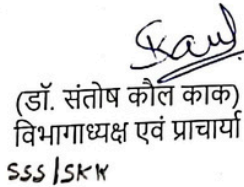 Kaul
(डॉ. संतोष कौल काक)
विभागाध्यक्ष एवं प्राचार्या
SSS/SKK